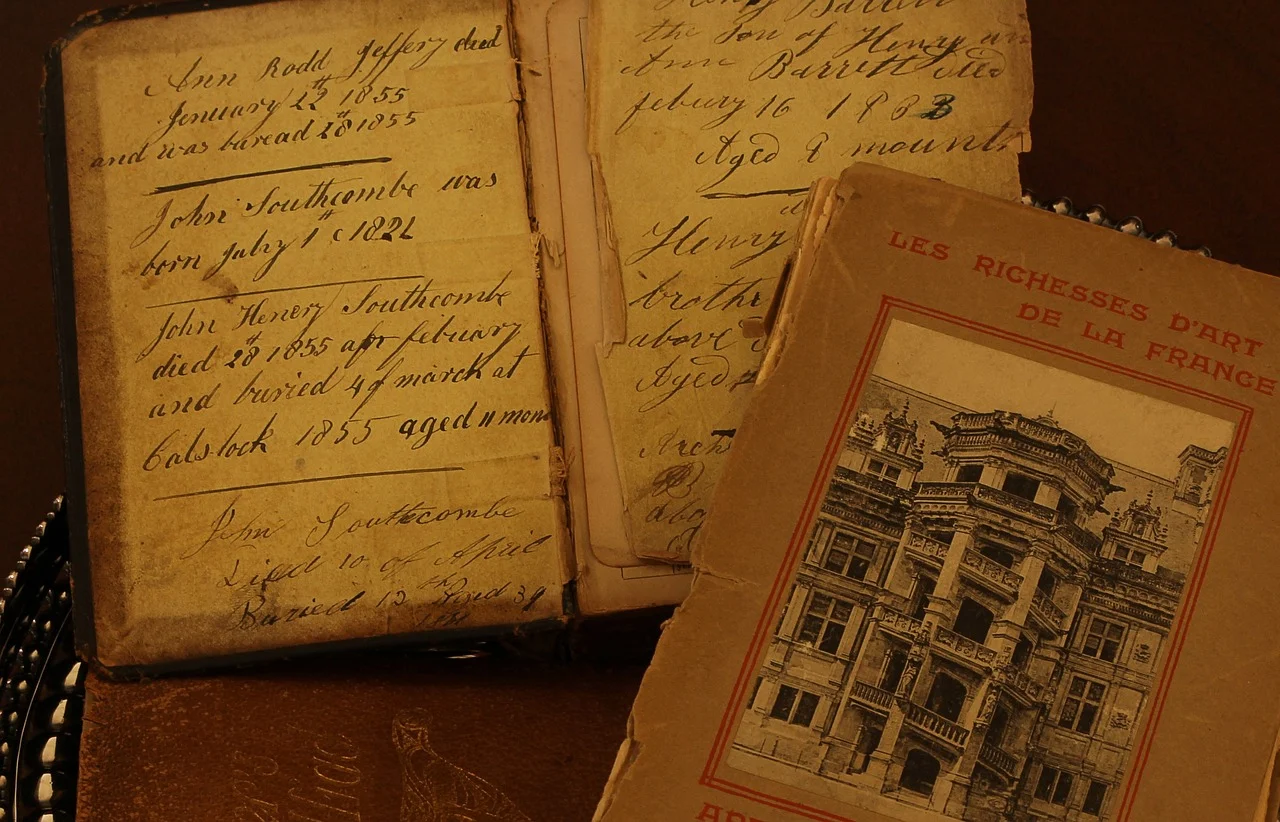 Ann Rodd Jeffery died
Jenuary 22th 1855
and was buread 28th 1855
John Southcombe was
born July 1st 1821
John Henery Southcombe
died 28th 1855 apr febuary
and buried 4 of march at
Calstock 1855 aged 11 mon
John Southcombe
Died 10 of April
Buried 13th Aged 39
Henry Barrett
the Son of Henry an
Ann Barrett died
febury 16 1883
Aged 8 mounts
Henry
brothe
above
Aged
abo
LES RICHESSES D'ART
DE LA FRANCE